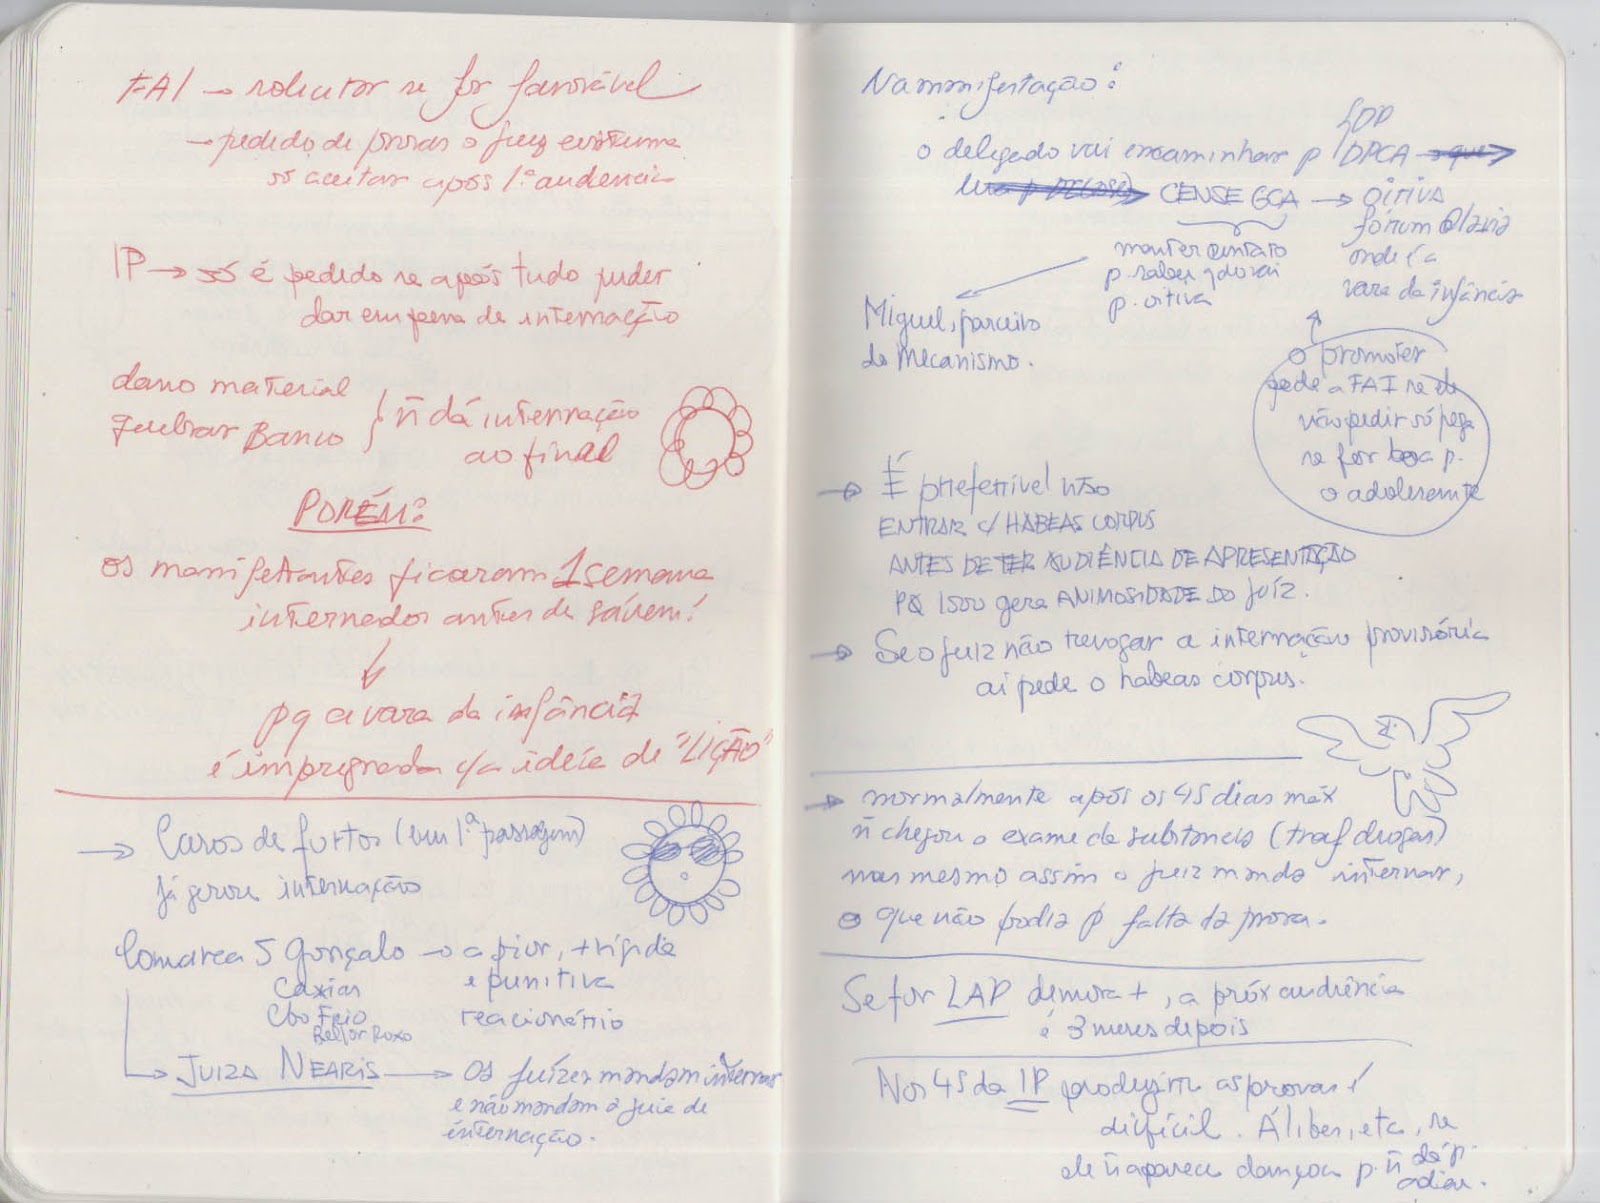 FAI → solicitar se for favorável
→ pedido de provas o juiz costuma
só aceitar após 1ª audência
IP → só é pedido se após tudo puder
dar em pena de internação
dano material
quebrar Banco } ñ dá internação
ao final
PORÉM:
os manifestantes ficaram 1 semana
internados antes de saírem!
↓
pq a vara da infância
é impregnada c/a idéia de "LIÇÃO"
→ Casos de furtos (em 1ª passagem)
já gerou internação
Comarca S Gonçalo → a pior, + rígida
Caxias e punitiva
Cbo Frio reacionário
Belfor Roxo
→ JUIZA NEARIS → Os juízes mandam internar
e não mandam a guia de
internação.
Na manifestação:
o delegado vai encaminhar p/ DPCA → que
CENSE GCA → oitiva
fórum Olaria
onde é a
vara da infância
manter contato
p. saber qdo vai
p. oitiva
Miguel, parceiro
do Mecanismo.
o promoter
pede a FAI se ele
não pedir só pega
se for boa p.
o adolescente
→ É preferrível não
ENTRAR c/ HABEAS CORPUS
ANTES DE TER AUDIÊNCIA DE APRESENTAÇÃO
PQ ISSO gera ANIMOSIDADE DO JUÍZ.
→ Se o juiz não revogar a internação provisória
aí pede o habeas corpus.
→ normalmente após os 45 dias máx
ñ chegou o exame da substancia (traf drogas)
mas mesmo assim o juiz manda internar,
o que não podia p falta da prova.
Se for LAP demora +, a próx audiência
é 3 meses depois
Nos 45 da IP produzirem as provas é
difícil. Álibes, etc, se
ele ñ aparecer dançou p. ñ dá p.
adiar.